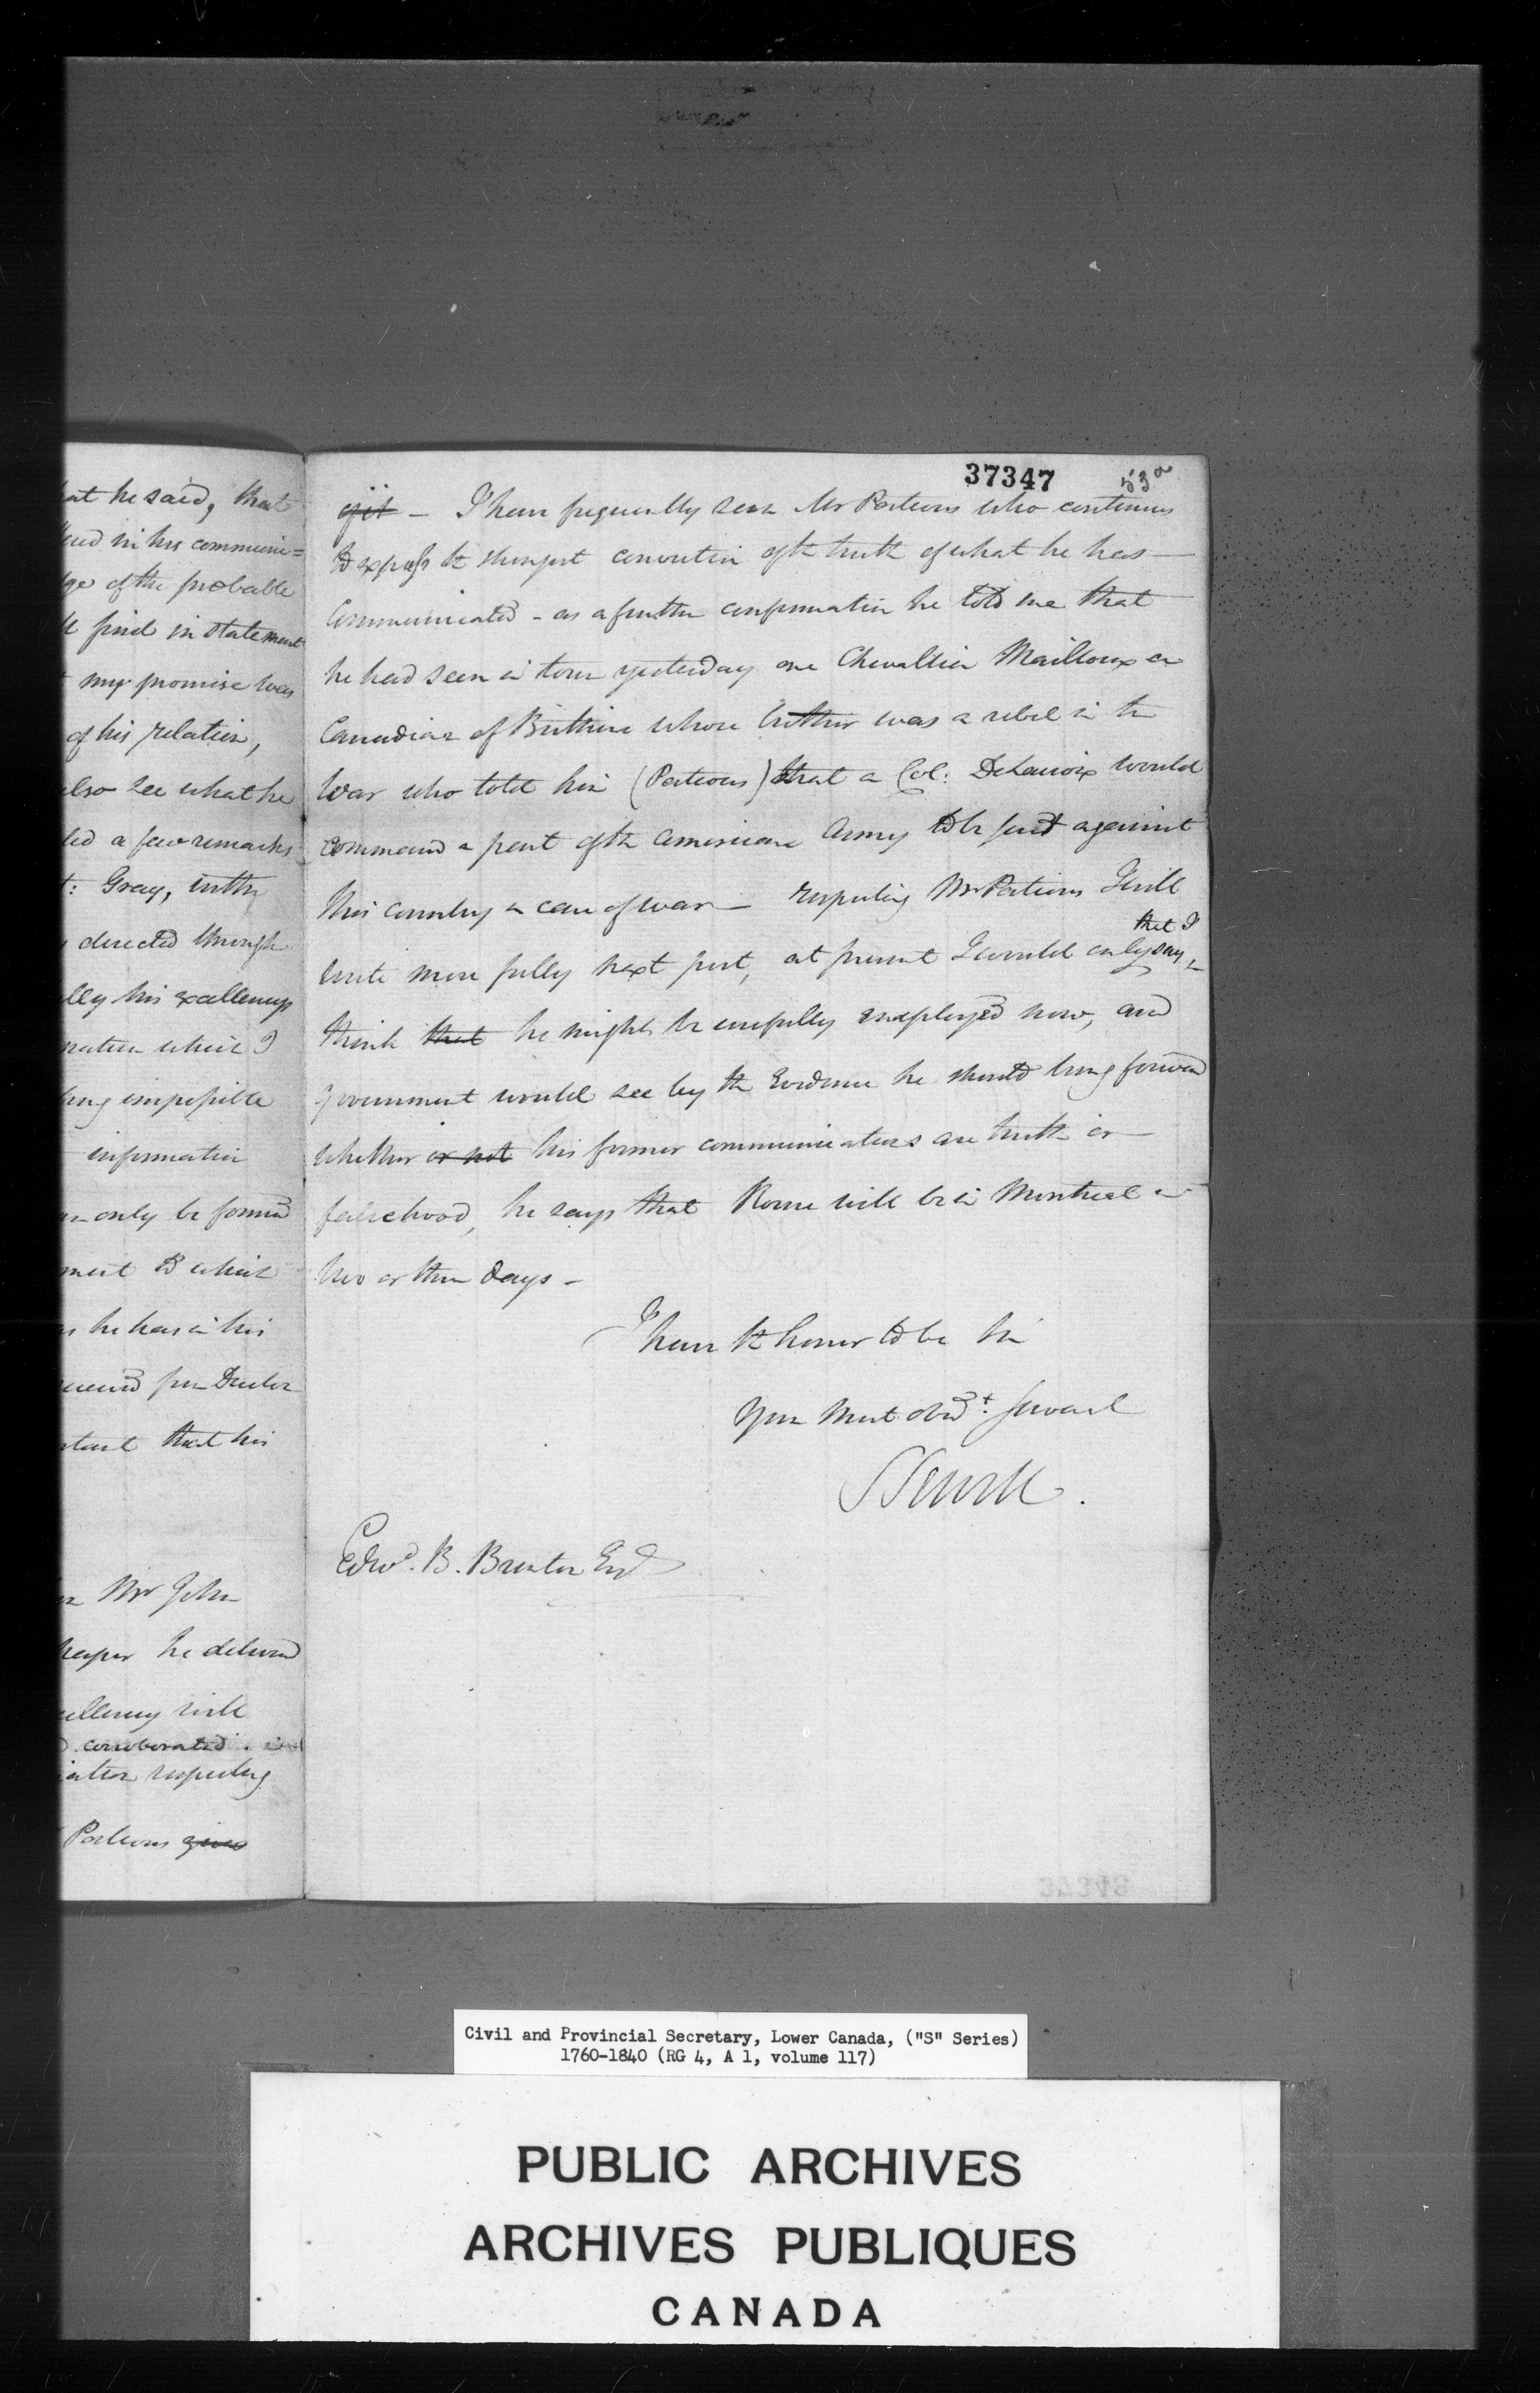 at he said, that
in his communi=
of the probable
find in statement
my promise was
of his relation,
also see what he
a few remarks
Gray, in the
directed through
his excellency
which I
impossible
information
only be formed
ment to which
he has in his
that his
Mr John
he delivered
will
corroborated
respecting
Porteous gives
37347
53a
of it - I have frequently seen Mr Porteous who continues
to express the strongest conviction of the truth of what he has
Communicated - as a further confirmation he told me that
he had seen in town yesterday one Chevallier Mailloux a
Canadian of Berthier whose brother was a rebel in the
War who told him (Porteous) that a Col: DeLacroix would
command a part of the American Army to be sent against
this country in case of war - respecting Mr Porteous I will
that I
write more fully next post, at present I would only say,
think that he might be usefully employed now, and
Government would see by the Evidence he should bring forward
whether or not his former communications are truth or
falsehood, he says that Rouse will be in Montreal in
two or three days -
I have the honor to be Sir
Your Most obedt. Servant
S Sewell.
Edwd. B. Brenton Esq
Civil and Provincial Secretary, Lower Canada, ("S" Series)
1760-1840 (RG 4, A 1, volume 117)
PUBLIC ARCHIVES
ARCHIVES PUBLIQUES
CANADA